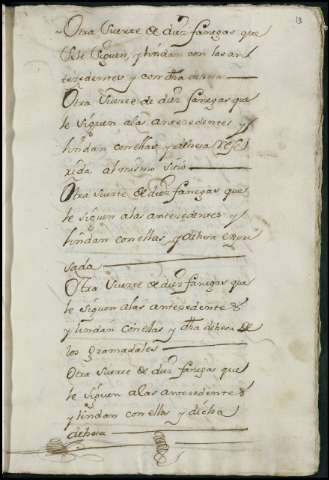 13
Otra Suerte de diez fanegas que
se le siguen, y lindan con las an
tecedentes y con dha dehesa
Otra Suerte de diez fanegas que
le siguen alas antecedentes y
lindan con ellas y dehesa
al mismo sitio
Otra suerte de diez fanegas que
le siguen alas antecedentes y
lindan con ellas, y dehesa expre
sada
Otra Suerte de diez fanegas que
le siguen alas antecedentes
y lindan con ellas y dha dehesa de
los gramadales
Otra Suerte de diez fanegas que
le siguen alas antecedentes
y lindan con ellas y dicha
dehesa